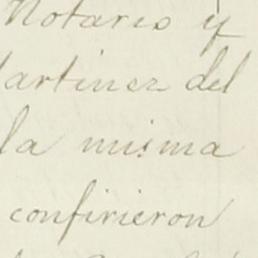 Notario y
Martinez del
la misma
confirieron